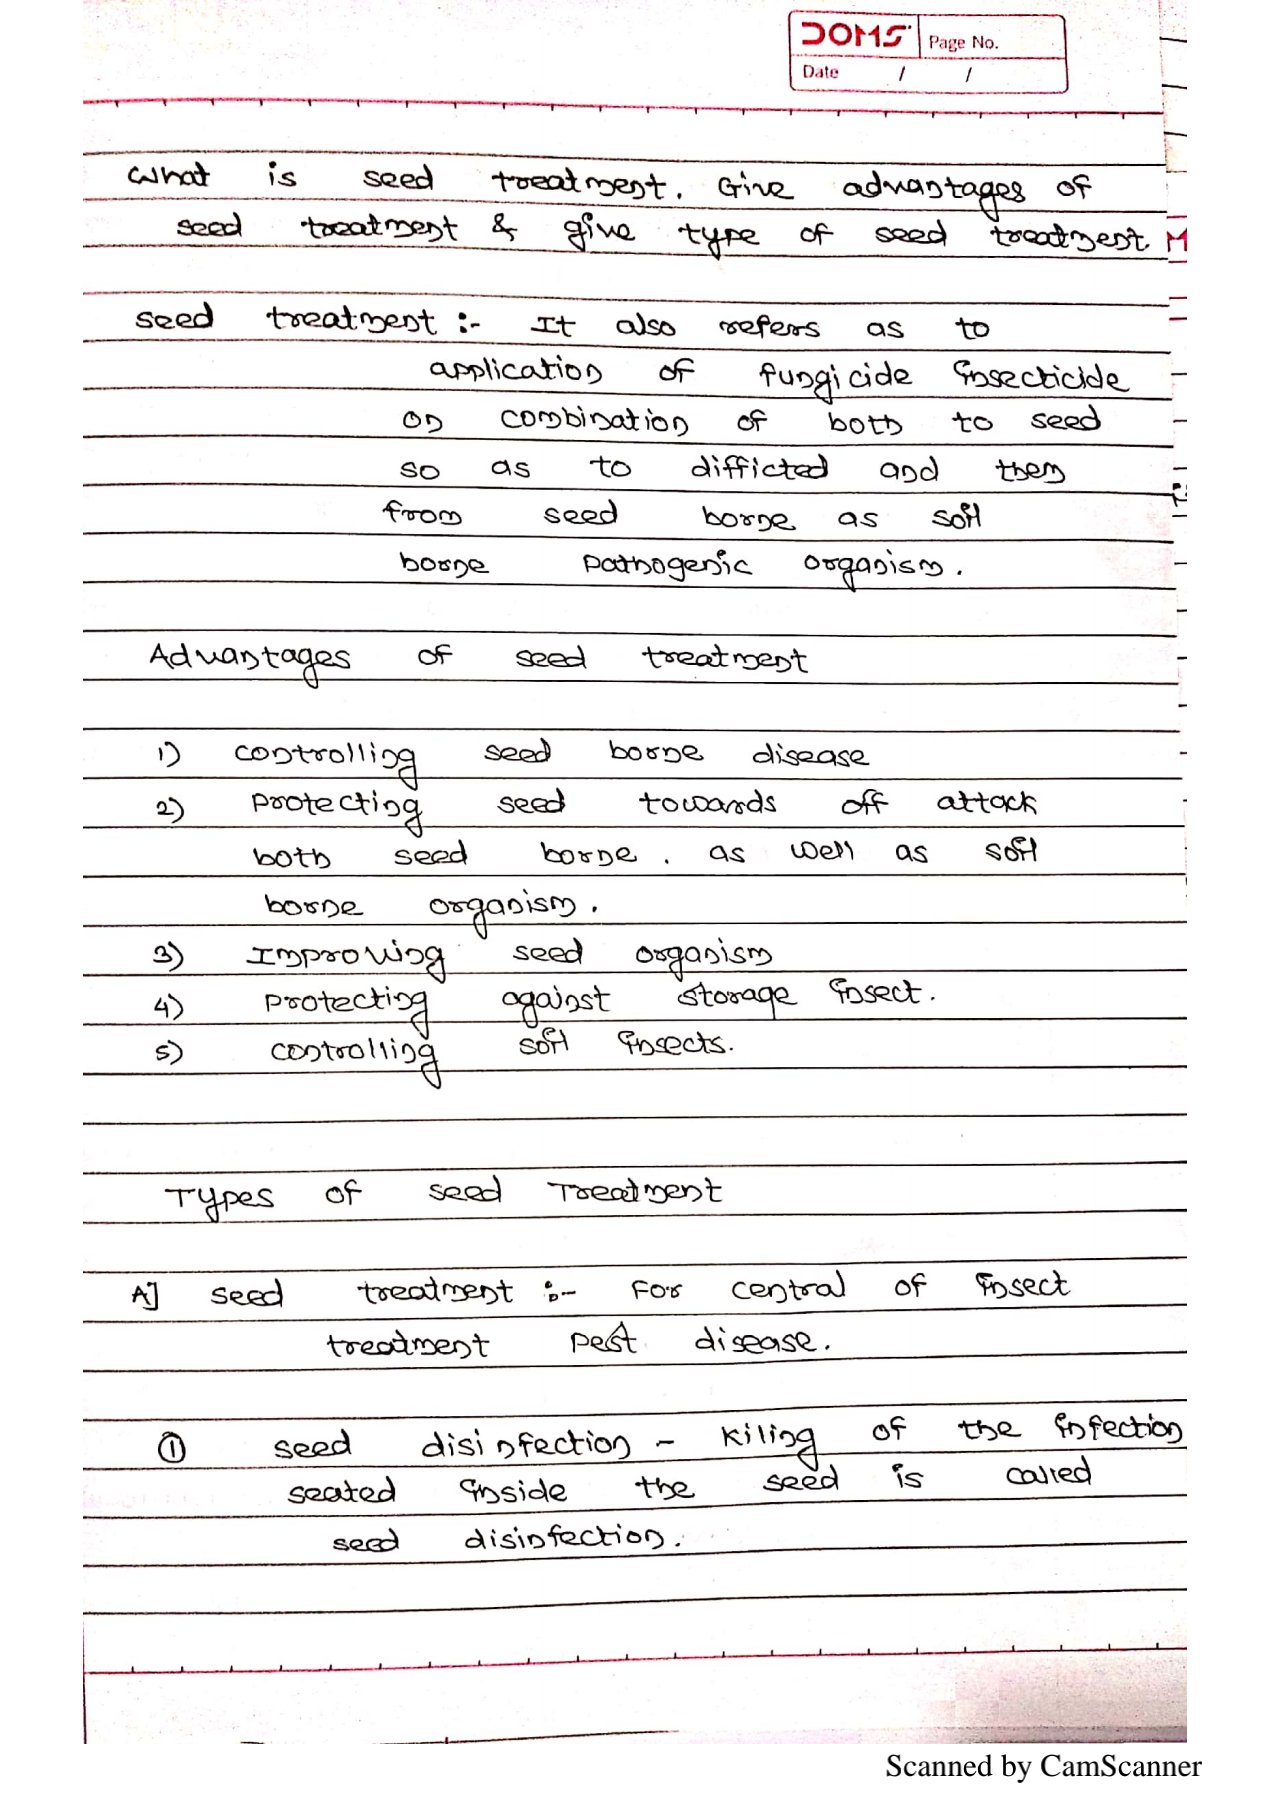 DOMS Page No.
Date / /
What is seed treatment. Give advantages of
seed treatment & give type of seed treatment.
seed treatment :- It also refers as to
application of fungicide insecticide
on combination of both to seed
so as to difficted and them
from seed borne as soil
borne pathogenic organism.
Advantages of seed treatment
1) controlling seed borne disease
2) protecting seed towards off attack
both seed borne. as well as soil
borne organism.
3) Improving seed organism
4) protecting against storage insect.
5) controlling soil insects.
Types of seed Treatment
A] seed treatment :- For central of insect
treatment pest disease.
① seed disinfection - Kiling of the infection
seated inside the seed is called
seed disinfection.
Scanned by CamScanner